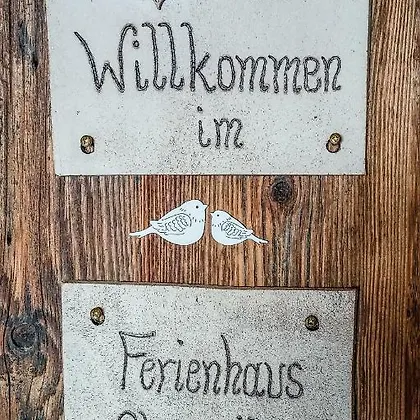 Willkommen
im
Ferienhaus